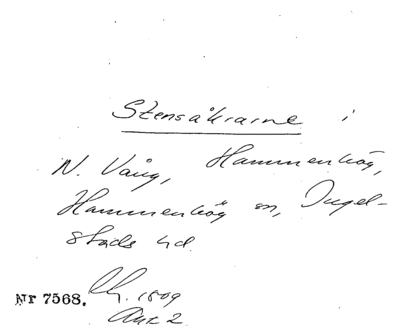 Stensåkrarne i
N. Vång, Hammenhög,
Hammenhög sn, Ingel-
stads hd.
Nr 7568. Ch. 1809
Akt 2